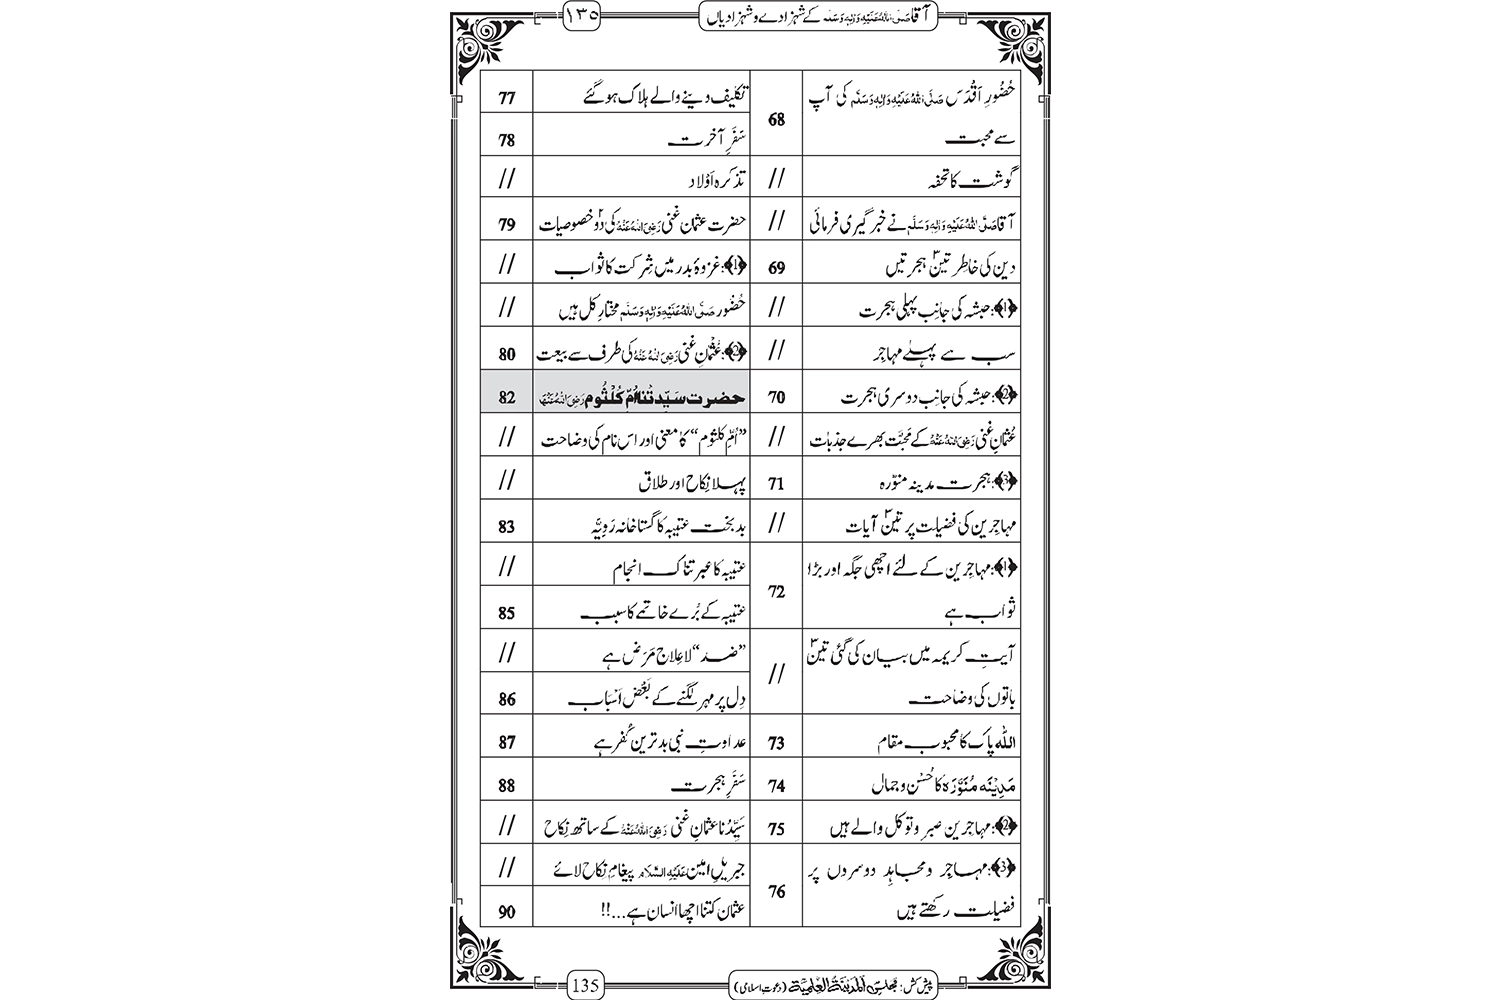 آقا صَلَّی اللہُ عَلَیْہِ وَاٰلِہٖ وَسَلَّم کے شہزادے و شہزادیاں
١٣٥
حُضُورِ اَقْدَس صَلَّی اللہُ عَلَیْہِ وَاٰلِہٖ وَسَلَّم کی آپ
سے محبت
68
گوشت کا تحفہ
//
آقا صَلَّی اللہُ عَلَیْہِ وَاٰلِہٖ وَسَلَّم نے خبر گیری فرمائی
//
دین کی خاطر تین۳ ہجرتیں
69
﴿1﴾: حبشہ کی جانِب پہلی ہجرت
//
سب سے پہلے مہاجر
//
﴿2﴾: حبشہ کی جانِب دوسری ہجرت
70
عُثمانِ غنی رَضِیَ اللہُ عَنْہُ کے مَحبَّت بھرے جذبات
//
﴿3﴾: ہجرت مدینہ منوّرہ
71
مہاجِرین کی فضیلت پر تین۳ آیات
//
﴿1﴾: مہاجرین کے لئے اچھی جگہ اور بڑا
ثواب ہے
72
آیتِ کریمہ میں بیان کی گئی تین۳
باتوں کی وضاحت
//
اللہ پاک کا محبوب مقام
73
مَدِیْنَہ مُنَوَّرَہ کا حُسْن و جمال
74
﴿2﴾: مہاجرین صبر و توکل والے ہیں
75
﴿3﴾: مہاجر و مجاہِد دوسروں پر
فضیلت رکھتے ہیں
76
تکلیف دینے والے ہلاک ہو گئے
77
سَفَرِ آخرت
78
تذکرہ اَوْلاد
//
حضرت عثمان غنی رَضِیَ اللہُ عَنْہُ کی دو۲ خصوصیات
79
﴿1﴾: غزوۂ بدر میں شِرکت کا ثواب
//
حُضُور صَلَّی اللہُ عَلَیْہِ وَاٰلِہٖ وَسَلَّم مختارِ کل ہیں
//
﴿2﴾: عُثْمٰنِ غنی رَضِیَ اللہُ عَنْہُ کی طرف سے بیعت
80
حضرت سَیِّدَتُنا اُمِّ کُلْثُوم رَضِیَ اللہُ عَنْہَا
82
”اُمِّ کلثوم“ کا معنی اور اس نام کی وضاحت
//
پہلا نِکاح اور طلاق
//
بدبخت عتیبہ کا گستاخانہ رَوِیَّہ
83
عتیبہ کا عبرتناک انجام
//
عتیبہ کے بُرے خاتمے کا سبب
85
”ضد“ لاعِلاج مَرَض ہے
//
دِل پر مہر لگنے کے بَعْض اَسْبَاب
86
عداوتِ نبی بدترین کُفر ہے
87
سَفَرِ ہجرت
88
سَیِّدُنا عثمانِ غنی رَضِیَ اللہُ عَنْہُ کے ساتھ نِکاح
//
جبریلِ امین عَلَیْہِ السَّلَام پیغامِ نِکاح لائے
//
عثمان کتنا اچھا انسان ہے...!!
90
پیش کش: مجلس اَلْمَدِیْنَۃُ الْعِلْمِیَّۃ (دعوتِ اسلامی)
135